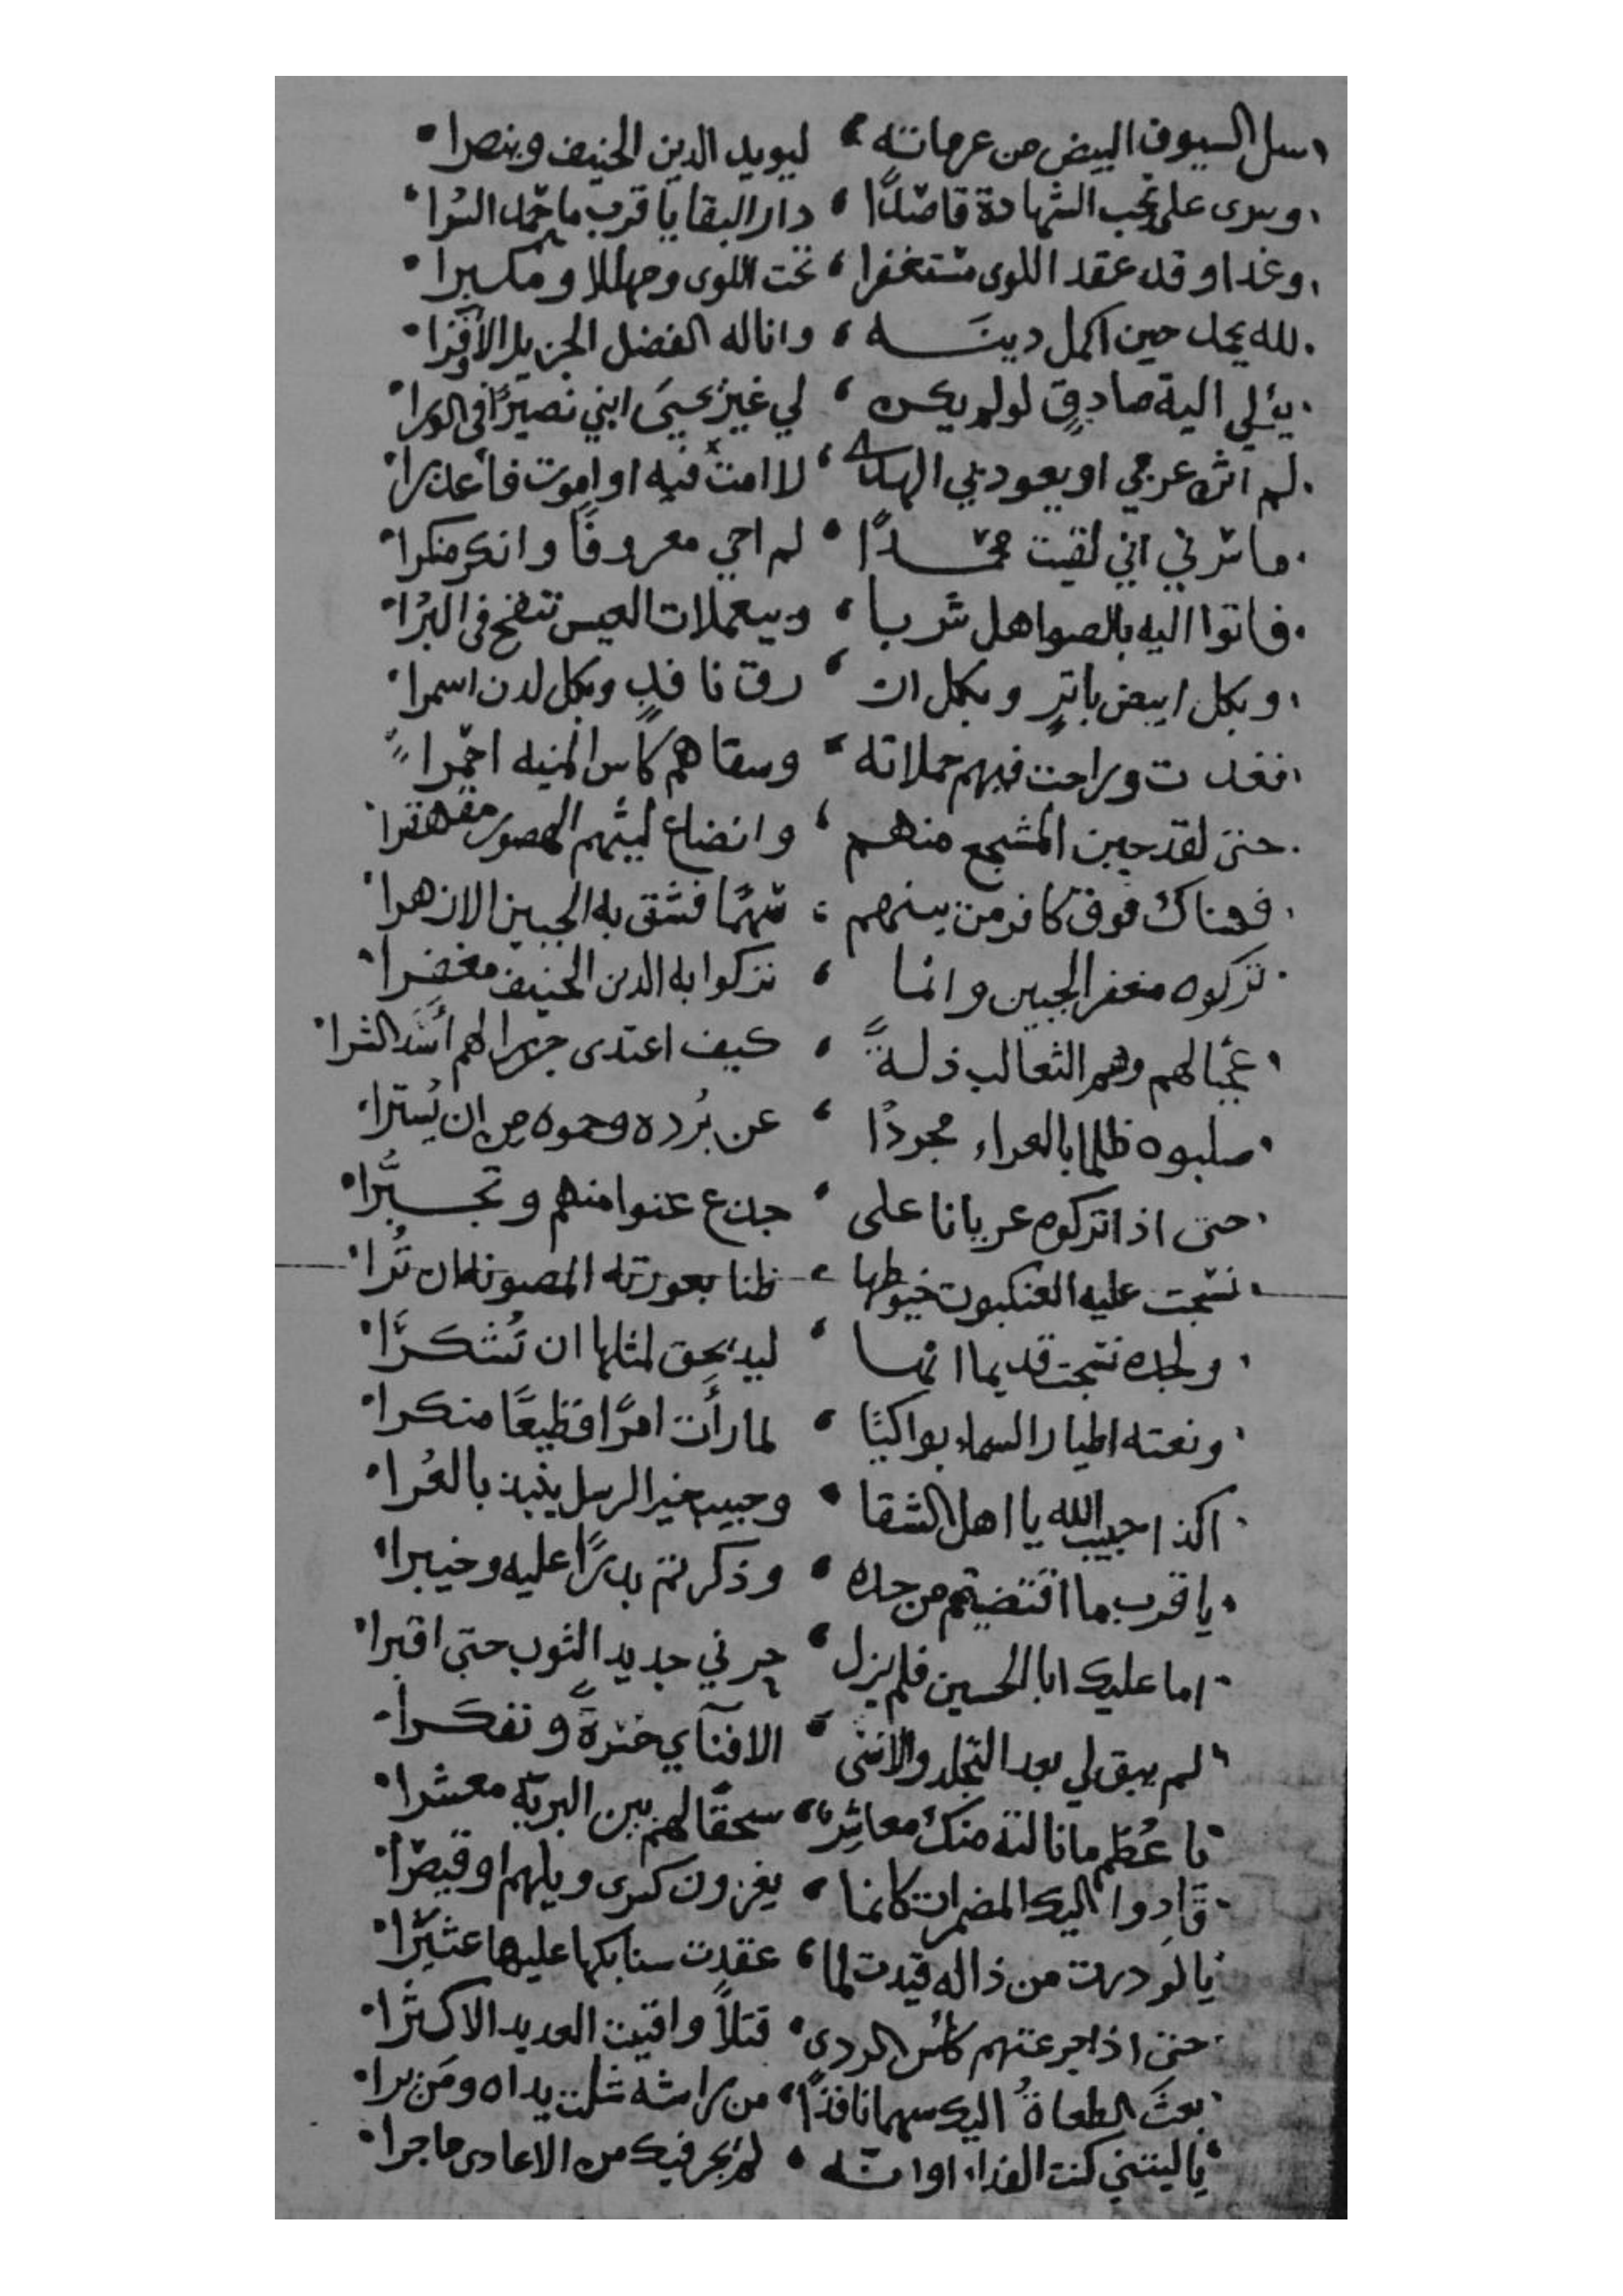 سل السيوف البيض من عزماته ، ليويد الدين الحنيف وينصرا
وسرى على نجب الشهادة قاصدًا ، دار البقا يا قرب ما حمد السُرا
وغدا وقد عقد اللوى مستغفرا ، تحت اللوى ومهللا ومكبرا
لله يحمد حين اكمل دينه ، واناله الفضل الجزيل الأوفرا
يؤلي الية صادقٍ لو لم يكن ، لي غير يحيى ابني نصيرًا في الورا
لم اثن عزمي او يعود بي الهدى ، لا امت فيه او اموت فأعذرا
ما سرني اني لقيت محمدًا ، لم احي معروفًا وانكر منكرا
فاتوا اليه بالصواهل شربا ، وبيعملات العيس تنفخ في البُرا
وبكل ابيض باترٍ وبكل از ، رق نافذٍ وبكل لدن اسمرا
فغدت وراحت فيهم حملاته ، وسقاهم كاس المنيه احمرا
حتى لقد جبن المشجع منهم ، وانضاع ليثهم الهصور مقهقرا
فهناك فوق كافر من بينهم ، سهمًا فشق به الجبين الازهرا
تركوه منعفر الجبين وانما ، تركوا به الدين الحنيف معفرا
عجبًا لهم وهم الثعالب ذلةً ، كيف اعتدى جزرا لهم أسد الشرا
صلبوه ظلما بالعراء مجردًا ، عن بُرده وحموه من ان يُسترا
حتى اذا تركوه عريانا على ، جذع عتوا منهم وتجبُّرا
نسجت عليه العنكبوت خيوطها ، ظنا بعورته المصونه ان تُرا
ولجده نسجت قديما انها ، ليد يحق لمثلها ان تُشكرَا
ونعته اطيار السماء بواكيًا ، لما رأت امرًا فظيعًا منكرا
اكذا حبيب الله يا اهل الشقا ، وحبيب خير الرسل ينبذ بالعُرا
يا قرب ما اقتضيتم من جده ، وذكرتم بدرًا عليه وخيبرا
اما عليك ابا الحسين فلم يزل ، حزني جديد الثوب حتى اقبرا
لم يبق لي بعد التجلد والاسى ، الا فنآي حسرةً وتفكرا
يا عُظم ما نالته منك معاشرٌ ، سحقًا لهم بين البريّه معشرا
قادوا اليك المضمرات كانما ، يغزون كسرى ويلهم او قيصرا
يا لو درت من ذا له قيدت لما ، عقدت سنابكها عليها عثيرا
حتى اذا جرعتهم كأس الردى ، قتلاً وافنيت العديد الاكثرا
بعث الطغاةُ اليك سهما نافذًا ، من راشه شلت يداه ومَن برا
يا ليتني كنت الفداء اوانه ، لم يجر فيك من الاعادى ما جرا